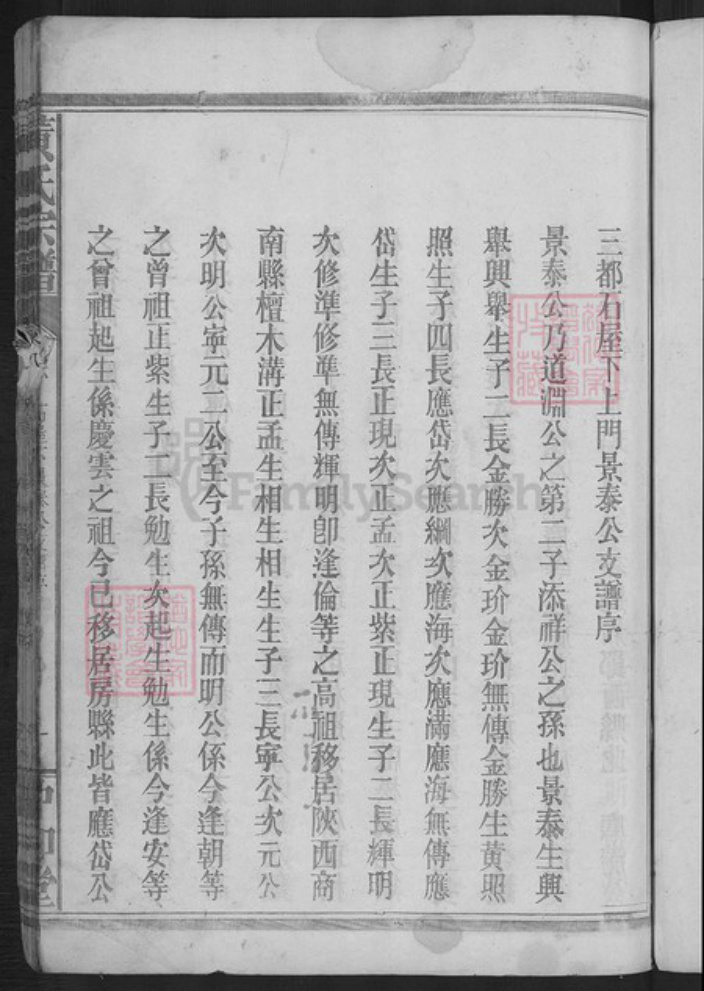 三都石屋下上門景泰公支譜序
景泰公乃道淵公之第二子添祥公之孫也景泰生興
舉興舉生子二長金勝次金玠金玠無傳金勝生黃照
照生子四長應岱次應綱次應海次應滿應海無傳應
岱生子三長正現次正孟次正紫正現生子二長輝明
次修準修準無傳輝明卽逢倫等之高祖移居陝西商
南縣檀木溝正孟生相生相生生子三長寧公次元公
次明公寧元二公至今子孫無傳而明公係今逢朝等
之曾祖正紫生子二長勉生次起生勉生係今逢安等
之曾祖起生係慶雲之祖今已移居房縣此皆應岱公
黃氏宗譜
FamilySearch